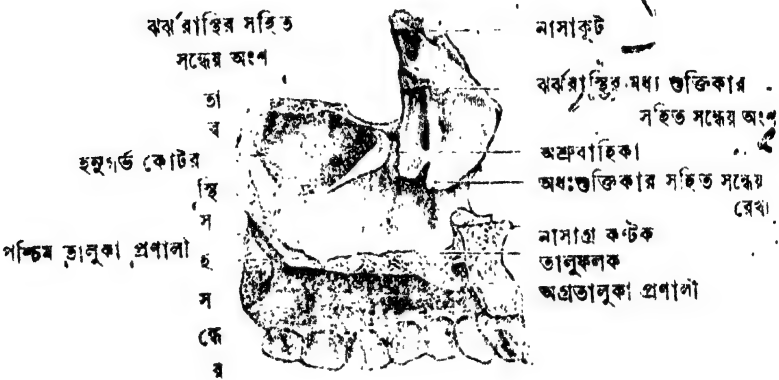 ঝর্ঝরাস্থির সহিত
সন্ধেয় অংশ
তা
ল
হনুগর্ভ কোটর
স্থি
স
পশ্চিম তালুকা প্রণালী
হ
স
ন্ধে
র
নাসাকূট
ঝর্ঝরাস্থির মধ্য শুক্তিকার
সহিত সন্ধেয় অংশ
অশ্রুবাহিকা
অধঃশুক্তিকার সহিত সন্ধেয়
রেখা
নাসাগ্র কণ্টক
তালুফলক
অগ্রতালুকা প্রণালী